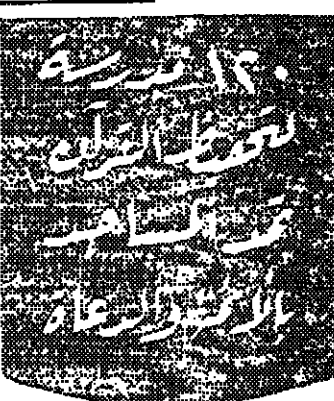 ١٢٠ مدرسة
لتحفيظ القرآن
تمد المساجد
بالأئمة والدعاة